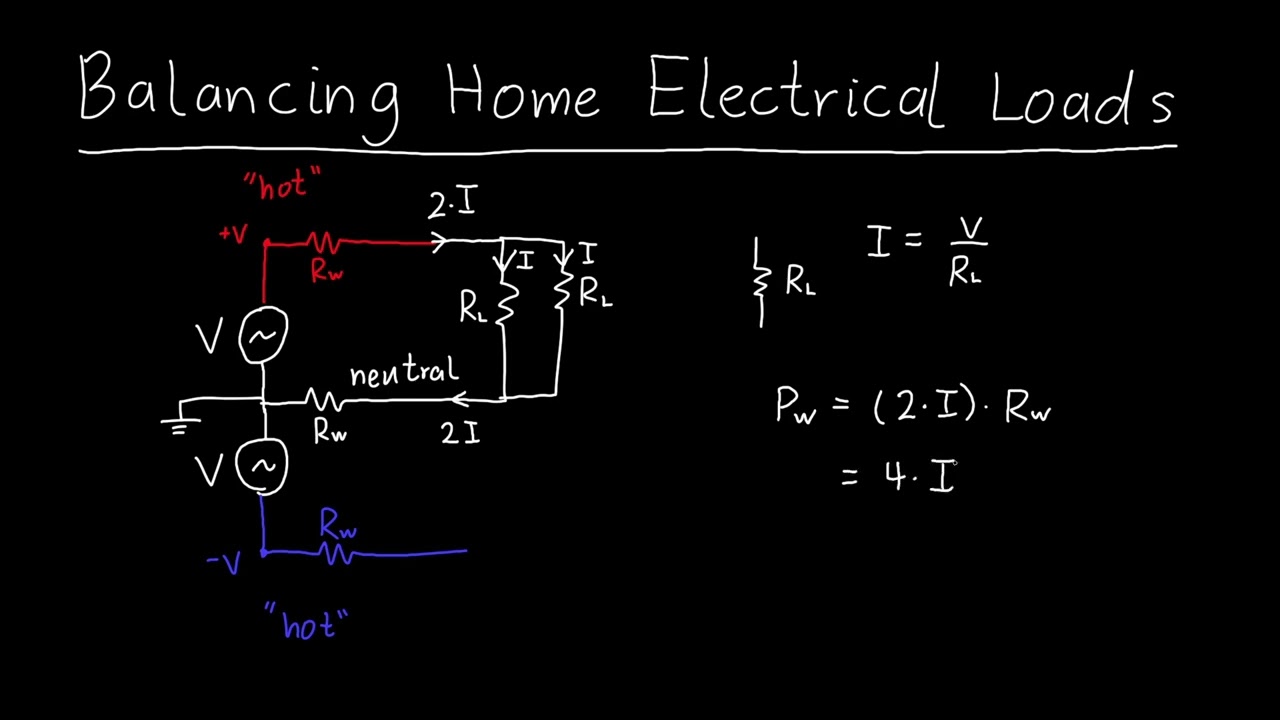 Balancing Home Electrical Loads
"hot"
+V
Rw
2·I
I
I
RL
RL
V
neutral
Rw
2I
V
Rw
-V
"hot"
RL
I = V/RL
Pw = (2·I)·Rw
= 4·I